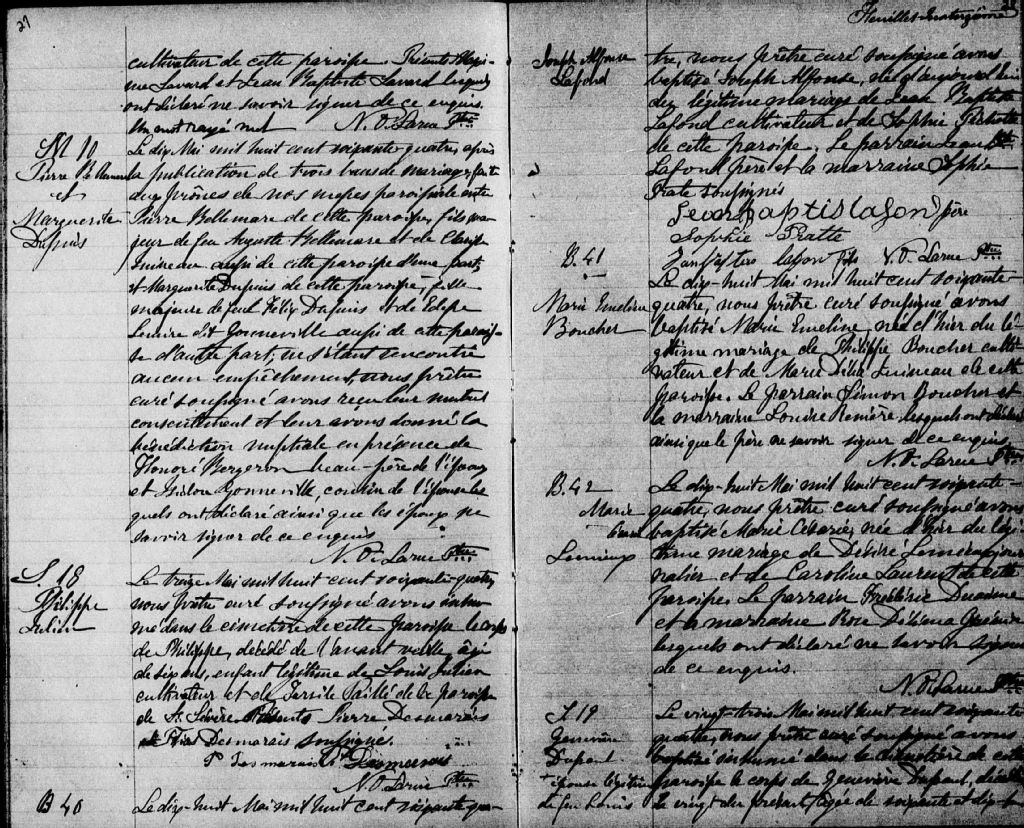 27
cultivateur de cette paroisse. Présents
Lavard et Jean Baptiste Lavard lesquels
ont déclaré ne savoir signer de ce enquis.
Un mot rayé nul N. O. Larue Ptre
M 10
Pierre Bellemare
et
Marguerite
Dupuis
Le dix Mai mil huit cent soixante-quatre, après
la publication de trois bans de mariage, faite
aux prônes de nos messes paroissiales entre
Pierre Bellemare de cette paroisse, fils ma-
jeur de feu Auguste Bellemare et de
aussi de cette paroisse d'une part,
et Marguerite Dupuis de cette paroisse, fille
majeure de feu Félix Dupuis et de
dit Bonneville aussi de cette parois-
se d'autre part, ne s'étant rencontré
aucun empêchement, nous prêtre
curé soussigné avons reçu leur mutuel
consentement et leur avons donné la
bénédiction nuptiale en présence de
Honoré Bergeron beau-père de l'époux
et Bonneville, cousin de l'épouse les
quels ont déclaré ainsi que les époux ne
savoir signer de ce enquis.
N. O. Larue Ptre
S. 18
Philippe
Julien
Le treize Mai mil huit cent soixante-quatre,
nous prêtre curé soussigné avons inhu-
mé dans le cimetière de cette paroisse le corps
de Philippe, décédé de l'avant veille, âgé
de six ans, enfant légitime de Louis Julien
cultivateur et de Tarsile Paillé de la paroisse
de St. Sévère. Présents Pierre Desmarais
Desmarais soussignés.
P Desmarais Desmarais
N. O. Larue Ptre
B 40
Le dix-huit Mai mil huit cent soixante qua-
Joseph Alfonse
Lafond
tre, nous prêtre curé soussigné avons
baptisé Joseph Alfonse, né d'aujourd'hui
du légitime mariage de Jean Baptiste
Lafond cultivateur et de Sophie
de cette paroisse. Le parrain Jean Bte
Lafond père et la marraine Sophie
Frate soussignés
Jean Baptis lafon père
Sophie Pratte
lafon fils N. O. Larue Ptre
B. 41
Marie Emeline
Boucher
Le dix-huit Mai mil huit cent soixante
quatre, nous prêtre curé soussigné avons
baptisé Marie Emeline, née d'hier du lé-
gitime mariage de Philippe Boucher culti
vateur et de Marie Délia de cette
paroisse. Le parrain Simon Boucher et
la marraine Louise lesquels ont déclaré
ainsi que le père ne savoir signer de ce enquis.
N. O. Larue Ptre
B. 42
Marie
Lemieux
Le dix-huit Mai mil huit cent soixante-
quatre, nous prêtre curé soussigné avons
baptisé Marie Césarie, née d'hier du légi
time mariage de Désiré Lemieux jour
nalier et de Caroline Laurent de cette
paroisse. Le parrain Frédéric
et la marraine Rose Délima
lesquels ont déclaré ne savoir signer
de ce enquis.
N. O. Larue Ptre
S. 19
Geneviève
Dupont
épouse légitime
de feu Louis
Le vingt-trois Mai mil huit cent soixante
quatre, nous prêtre curé soussigné avons
baptisé inhumé dans le cimetière de cette
paroisse le corps de Geneviève Dupont, décédée
le vingt du présent, âgée de soixante et dix-